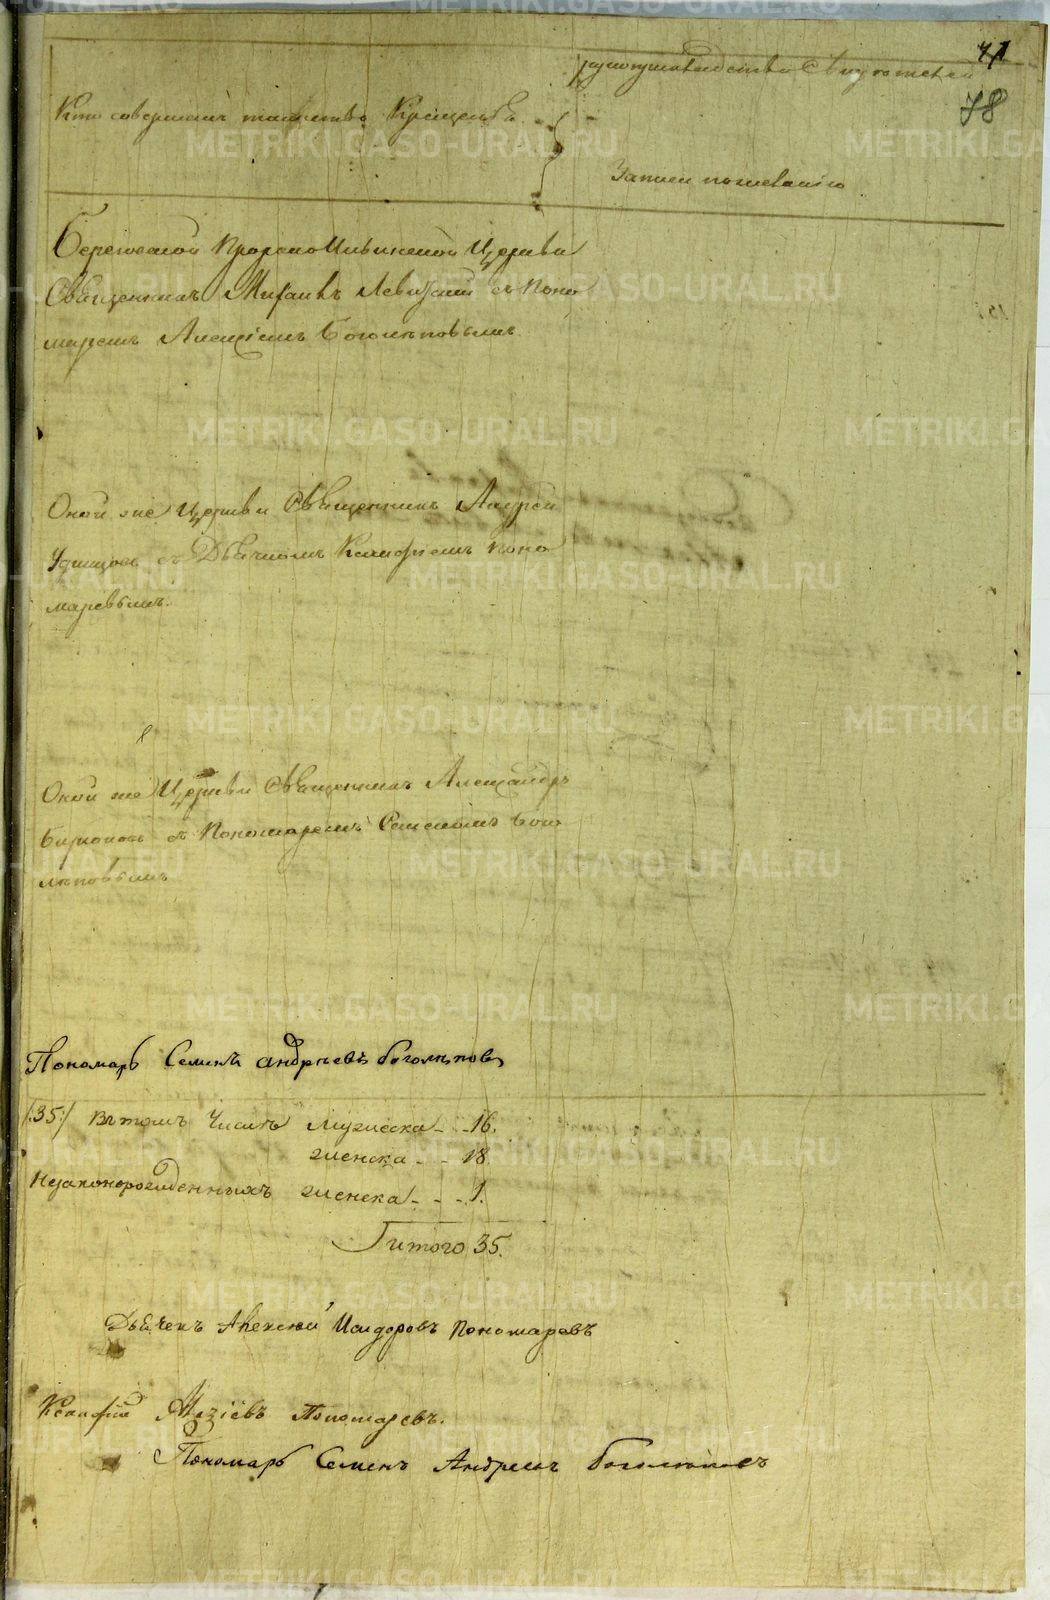 71
78
Кто совершалъ таинство Крещенія
рукоприкладство Свидѣтелей
Записи по желанію
Береговой Пророко Ильинской Церкви
Священникъ Михаилъ Левитскій съ Поно
маремъ Алексіемъ Боголѣповымъ
Оной же Церкви Священникъ Андрей
Удинцовъ съ Дьячкомъ Ксанфіемъ Поно
маревымъ.
Оной же Церкви Священникъ Александръ
Бирюковъ съ Пономаремъ Семеномъ Бого
лѣповымъ
Пономарь Семенъ Андрѣевъ Боголѣповъ
/:35:/ Въ томъ Числѣ Мужеска - - 16.
женска - - 18
Незаконорожденныхъ женска - - - 1.
Итого 35.
Дьячекъ Алексей Исидоровъ Пономаревъ
Ксанфій Пономаревъ.
Пономарь Семенъ Андреевъ Боголеповъ
METRIKI.GASO-URAL.RU